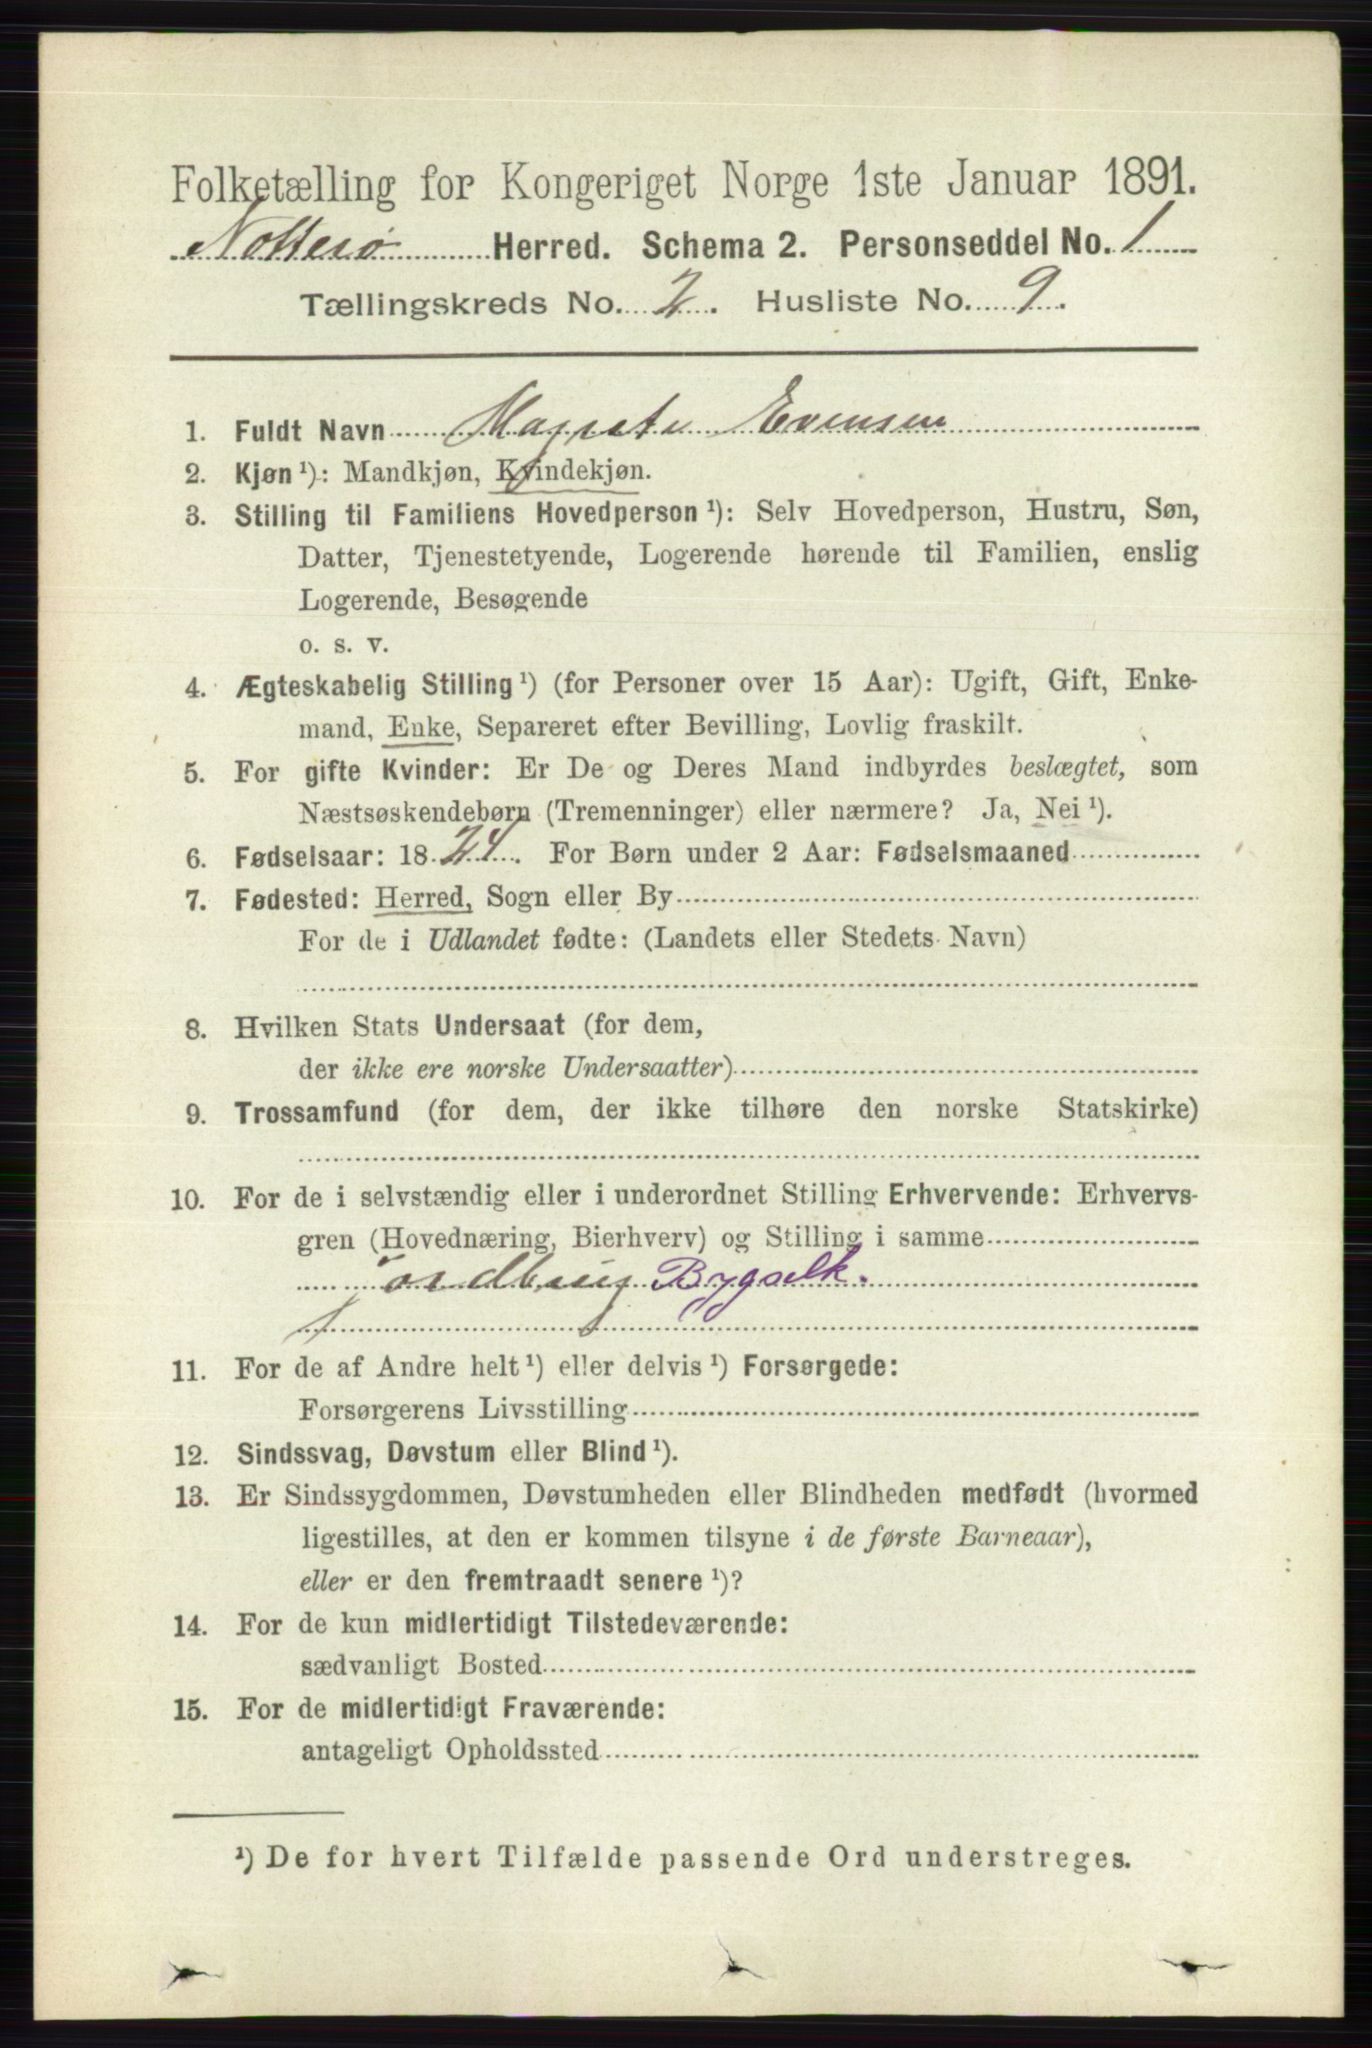 Folketælling for Kongeriget Norge 1ste Januar 1891.
Nøtterø Herred. Schema 2. Personseddel No. 1
Tællingskreds No. 2. Husliste No. 9.
1. Fuldt Navn Evensen
2. Kjøn ¹): Mandkjøn, Kvindekjøn.
3. Stilling til Familiens Hovedperson ¹): Selv Hovedperson, Hustru, Søn,
Datter, Tjenestetyende, Logerende hørende til Familien, enslig
Logerende, Besøgende
o. s. v.
4. Ægteskabelig Stilling ¹) (for Personer over 15 Aar): Ugift, Gift, Enke-
mand, Enke, Separeret efter Bevilling, Lovlig fraskilt.
5. For gifte Kvinder: Er De og Deres Mand indbyrdes beslægtet, som
Næstsøskendebørn (Tremenninger) eller nærmere? Ja, Nei ¹).
6. Fødselsaar: 1824. For Børn under 2 Aar: Fødselsmaaned
7. Fødested: Herred, Sogn eller By
For de i Udlandet fødte: (Landets eller Stedets Navn)
8. Hvilken Stats Undersaat (for dem,
der ikke ere norske Undersaatter)
9. Trossamfund (for dem, der ikke tilhøre den norske Statskirke)
10. For de i selvstændig eller i underordnet Stilling Erhvervende: Erhvervs-
gren (Hovednæring, Bierhverv) og Stilling i samme
Jordbrug Bygselk.
11. For de af Andre helt ¹) eller delvis ¹) Forsørgede:
Forsørgerens Livsstilling
12. Sindssvag, Døvstum eller Blind ¹).
13. Er Sindssygdommen, Døvstumheden eller Blindheden medfødt (hvormed
ligestilles, at den er kommen tilsyne i de første Barneaar),
eller er den fremtraadt senere ¹)?
14. For de kun midlertidigt Tilstedeværende:
sædvanligt Bosted
15. For de midlertidigt Fraværende:
antageligt Opholdssted
¹) De for hvert Tilfælde passende Ord understreges.